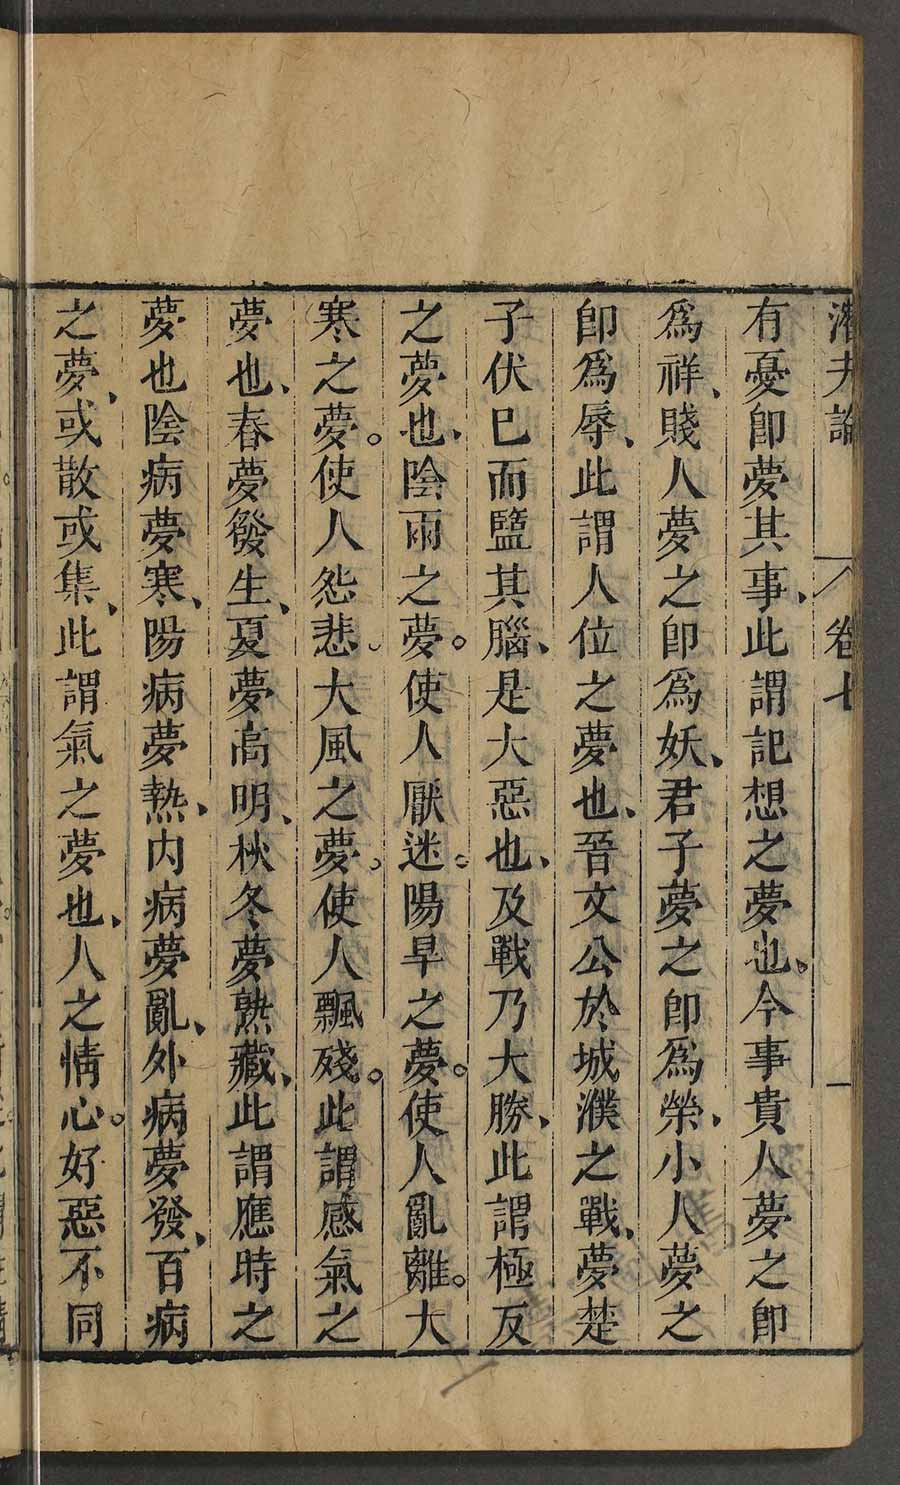 潛夫論 卷七 一
有憂卽夢其事、此謂記想之夢也、今事貴人夢之卽
爲祥、賤人夢之卽爲妖、君子夢之卽爲榮、小人夢之
卽爲辱、此謂人位之夢也、晉文公於城濮之戰、夢楚
子伏已而盬其腦、是大惡也、及戰乃大勝、此謂極反
之夢也、陰雨之夢。使人厭迷。陽旱之夢。使人亂離。大
寒之夢。使人怨悲。大風之夢。使人飄殘。此謂感氣之
夢也、春夢發生、夏夢高明、秋冬夢熟藏、此謂應時之
夢也陰病夢寒、陽病夢熱、內病夢亂、外病夢發、百病
之夢、或散或集、此謂氣之夢也、人之情心。好惡不同